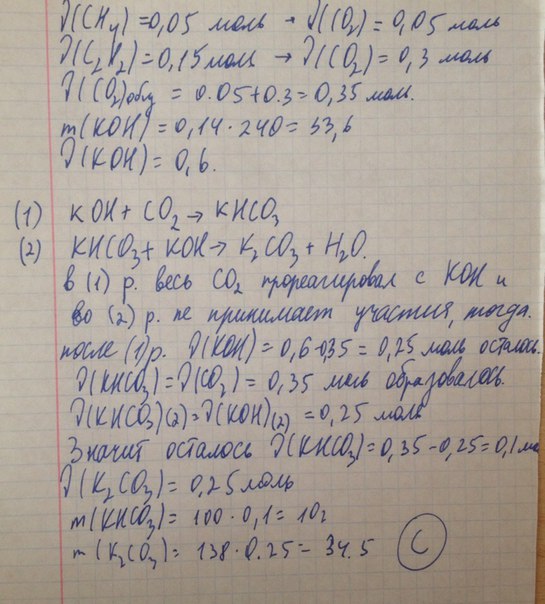 ν(CH₄) = 0,05 моль → ν(CO₂) = 0,05 моль
ν(C₂H₂) = 0,15 моль → ν(CO₂) = 0,3 моль
ν(CO₂)общ = 0.05 + 0.3 = 0,35 моль.
m(KOH) = 0,14 · 240 = 33,6
ν(KOH) = 0,6.
(1) KOH + CO₂ → KHCO₃
(2) KHCO₃ + KOH → K₂CO₃ + H₂O.
в (1) р. весь CO₂ прореагировал с KOH и
во (2) р. не принимает участия, тогда.
после (1) р. ν(KOH) = 0,6-0,35 = 0,25 моль осталось.
ν(KHCO₃) = ν(CO₂) = 0,35 моль образовалось.
ν(KHCO₃)(2) = ν(KOH)(2) = 0,25 моль
Значит осталось ν(KHCO₃) = 0,35 - 0,25 = 0,1 мо
ν(K₂CO₃) = 0,25 моль
m(KHCO₃) = 100 · 0,1 = 10г
m(K₂CO₃) = 138 · 0.25 = 34.5
C